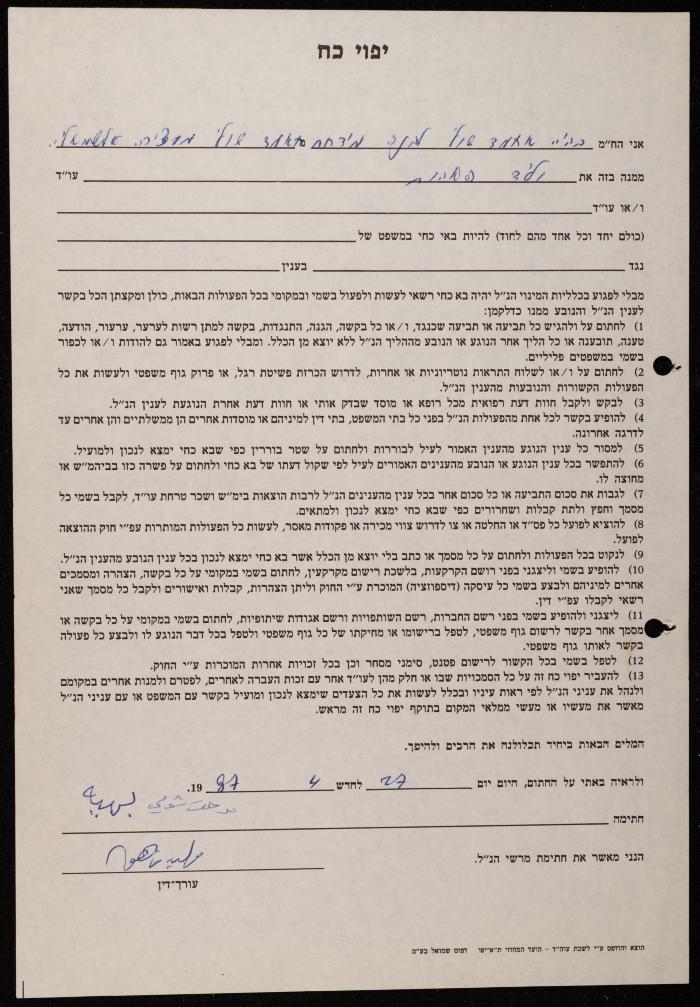 יפוי כח
אני הח"מ אחמד שולי מ אחמד שולי
ממנה בזה את וליד עו"ד
ו/או עו"ד
(כולם יחד וכל אחד מהם לחוד) להיות באי כחי במשפט של
נגד בענין
מבלי לפגוע בכלליות המינוי הנ"ל יהיה בא כחי רשאי לעשות ולפעול בשמי ובמקומי בכל הפעולות הבאות, כולן ומקצתן הכל בקשר
לענין הנ"ל והנובע ממנו כדלקמן:
1) לחתום על ולהגיש כל תביעה או תביעה שכנגד, ו/או כל בקשה, הגנה, התנגדות, בקשה למתן רשות לערער, ערעור, הודעה,
טענה, תובענה או כל הליך אחר הנוגע או הנובע מההליך הנ"ל ללא יוצא מן הכלל. ומבלי לפגוע באמור גם להודות ו/או לכפור
בשמי במשפטים פליליים.
2) לחתום על ו/או לשלוח התראות נוטריוניות או אחרות, לדרוש הכרזת פשיטת רגל, או פרוק גוף משפטי ולעשות את כל
הפעולות הקשורות והנובעות מהענין הנ"ל.
3) לבקש ולקבל חוות דעת רפואית מכל רופא או מוסד שבדק אותי או חוות דעת אחרת הנוגעת לענין הנ"ל.
4) להופיע בקשר לכל אחת מהפעולות הנ"ל בפני כל בתי המשפט, בתי דין למיניהם או מוסדות אחרים הן ממשלתיים והן אחרים עד
לדרגה אחרונה.
5) למסור כל ענין הנוגע מהענין האמור לעיל לבוררות ולחתום על שטר בוררין כפי שבא כחי ימצא לנכון ולמועיל.
6) להתפשר בכל ענין הנוגע או הנובע מהענינים האמורים לעיל לפי שקול דעתו של בא כחי ולחתום על פשרה כזו בביהמ"ש או
מחוצה לו.
7) לגבות את סכום התביעה או כל סכום אחר בכל ענין מהענינים הנ"ל לרבות הוצאות בימ"ש ושכר טרחת עו"ד, לקבל בשמי כל
מסמך וחפץ ולתת קבלות ושחרורים כפי שבא כחי ימצא לנכון ולמתאים.
8) להוציא לפועל כל פס"ד או החלטה או צו לדרוש צווי מכירה או פקודות מאסר, לעשות כל הפעולות המותרות עפ"י חוק ההוצאה
לפועל.
9) לנקוט בכל הפעולות ולחתום על כל מסמך או כתב בלי יוצא מן הכלל אשר בא כחי ימצא לנכון בכל ענין הנובע מהענין הנ"ל.
10) להופיע בשמי וליצגני בפני רושם הקרקעות, בלשכת רישום מקרקעין, לחתום בשמי במקומי על כל בקשה, הצהרה ומסמכים
אחרים למיניהם ולבצע בשמי כל עיסקה (דיספוזציה) המוכרת ע"י החוק וליתן הצהרות, קבלות ואישורים ולקבל כל מסמך שאני
רשאי לקבלו עפ"י דין.
11) ליצגני ולהופיע בשמי בפני רשם החברות, רשם השותפויות ורשם אגודות שיתופיות, לחתום בשמי במקומי על כל בקשה או
מסמך אחר בקשר לרשום גוף משפטי, לטפל ברישומו או מחיקתו של כל גוף משפטי ולטפל בכל דבר הנוגע לו ולבצע כל פעולה
בקשר לאותו גוף משפטי.
12) לטפל בשמי בכל הקשור לרישום פטנט, סימני מסחר וכן בכל זכויות אחרות המוכרות ע"י החוק.
13) להעביר יפוי כח זה על כל הסמכויות שבו או חלק מהן לעו"ד אחר עם זכות העברה לאחרים, לפטרם ולמנות אחרים במקומם
ולנהל את עניני הנ"ל לפי ראות עיניו ובכלל לעשות את כל הצעדים שימצא לנכון ומועיל בקשר עם המשפט או עם עניני הנ"ל
מאשר את מעשיו או מעשי ממלאי המקום בתוקף יפוי כח זה מראש.
המלים הבאות ביחיד תכלולנה את הרבים ולהיפך.
ולראיה באתי על החתום, היום יום 27 לחדש 4 19 87.
חתימה
הנני מאשר את חתימת מרשי הנ"ל.
עורך־דין
הוצא והודפס ע"י לשכת עוה"ד – הועד המחוזי ת"א־יפו דפוס שמואל בע"מ